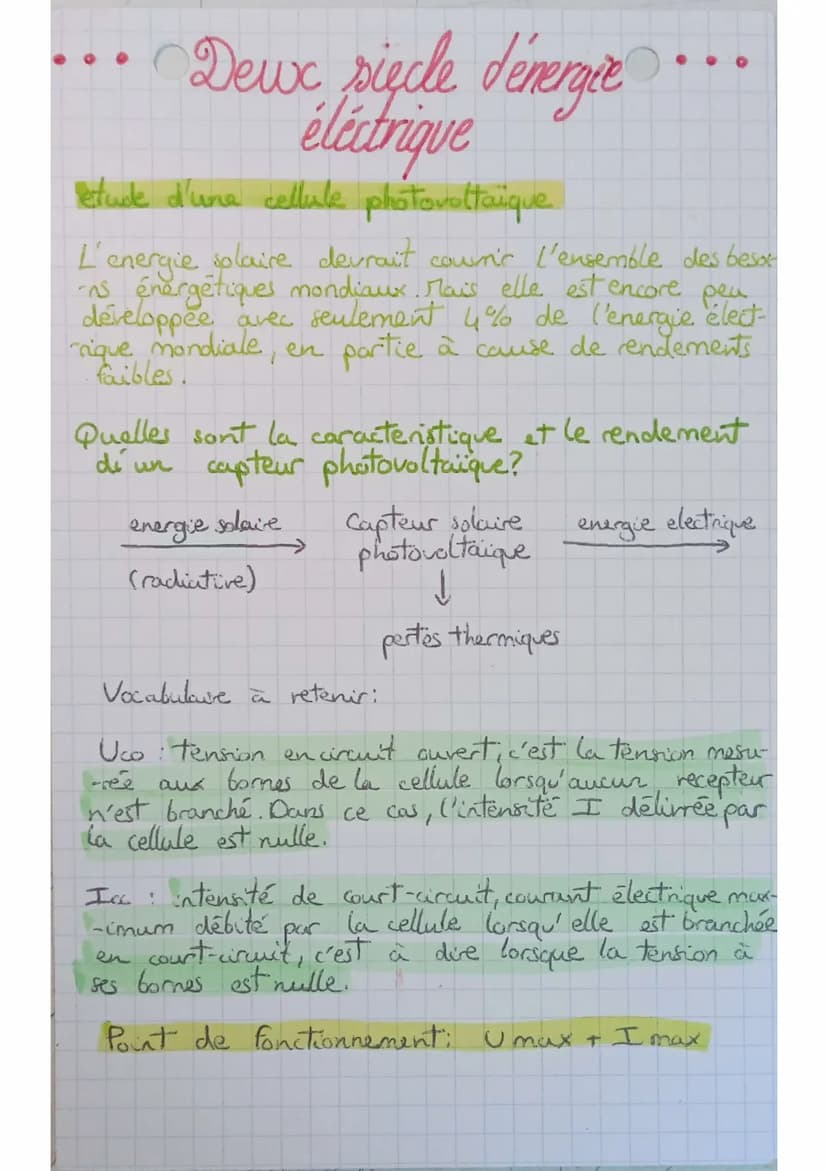 Deux siecle d'énergie
éléctrique
étude d'une cellule photovoltaïque
L'energie solaire devrait couvrir l'ensemble des besoi-
-ns énérgétiques mondiaux. Mais elle est encore peu
développée avec seulement 4% de l'energie élect-
-rique mondiale, en partie à cause de rendements
faibles.
Quelles sont la caracteristique et le rendement
d'un capteur photovoltaïque?
energie solaire Capteur solaire energie electrique
(radiative) photovoltaïque
pertes thermiques
Vocabulaire à retenir:
Uco : tension en circuit ouvert, c'est la tension mesu-
-rée aux bornes de la cellule lorsqu'aucun recepteur
n'est branché. Dans ce cas, l'intensité I délivrée par
la cellule est nulle.
Icc : intensité de court-circuit, courant électrique max-
-imum débité par la cellule lorsqu'elle est branchée
en court-circuit, c'est à dire lorsque la tension à
ses bornes est nulle.
Point de fonctionnement: U max + I max